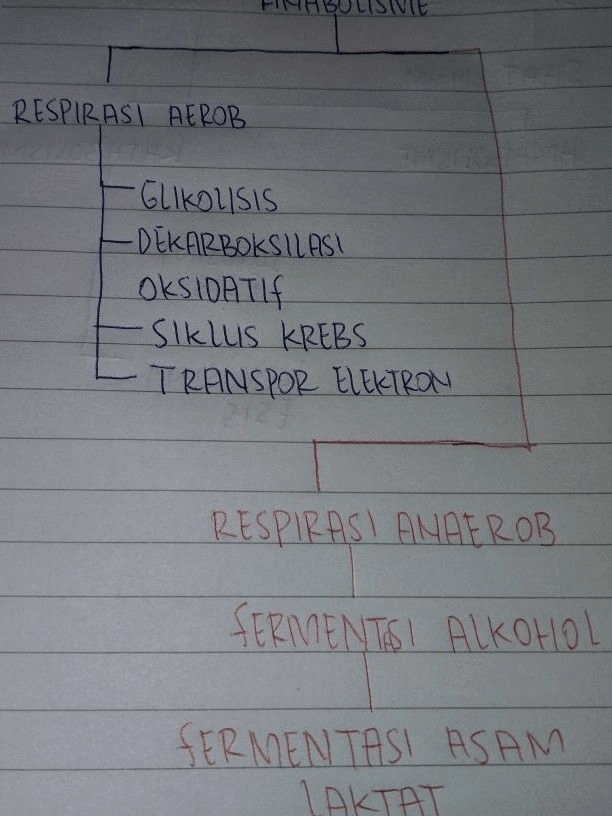 ANABOLISME
RESPIRASI AEROB
GLIKOLISIS
DEKARBOKSILASI
OKSIDATIf
SIKLUS KREBS
TRANSPOR ELEKTRON
RESPIRASI ANAEROB
fERMENTASI ALKOHOL
fERMENTASI ASAM
LAKTAT